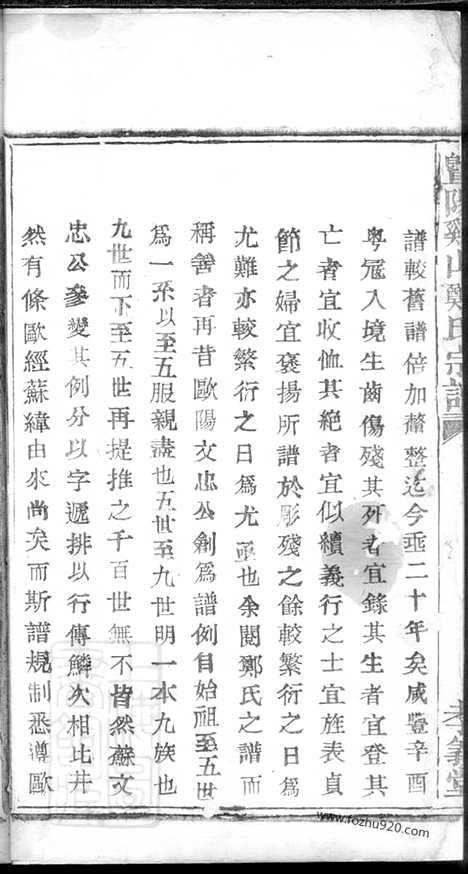 暨陽谿山鄭氏宗譜
譜較舊譜倍加釐整迄今垂二十年矣咸豐辛酉
粤冦入境生齒傷殘其死者宜錄其生者宜登其
亡者宜收恤其絕者宜似續義行之士宜旌表貞
節之婦宜褒揚所譜於彫殘之餘較繁衍之日為
尤難亦較繁衍之日為尤亟也余閱鄭氏之譜而
稱善者再昔歐陽文忠公創為譜例自始祖至五世
為一系以至五服親盡也五世至九世明一本九族也
九世而下至五世再提推之千百世無不皆然蘇文
忠公參變其例分以字遞排以行傳鱗次相比井
然有條歐經蘇緯由來尚矣而斯譜規制悉遵歐
www.fozhu920.com